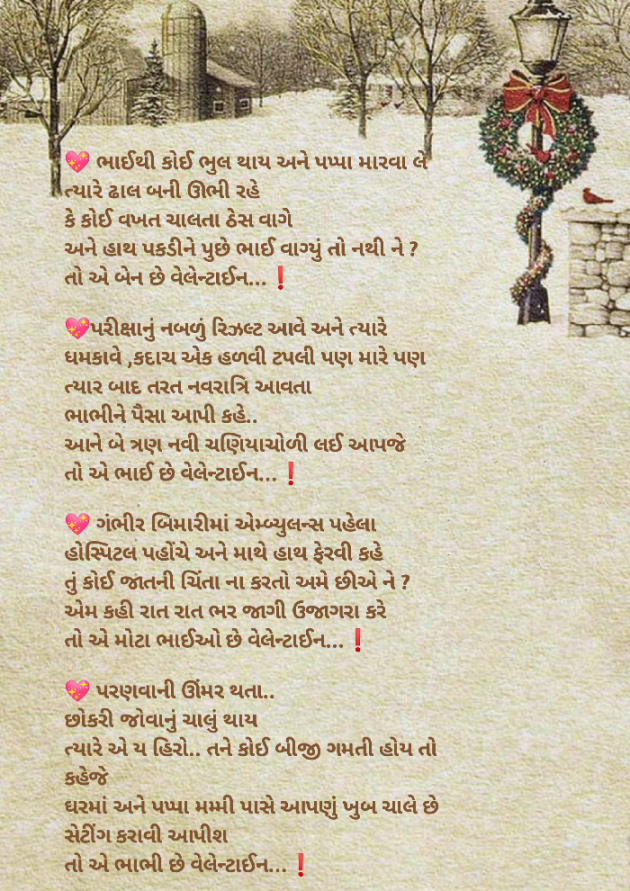 💖 ભાઈથી કોઈ ભુલ થાય અને પપ્પા મારવા લે
ત્યારે ઢાલ બની ઊભી રહે
કે કોઈ વખત ચાલતા ઠેસ વાગે
અને હાથ પકડીને પુછે ભાઈ વાગ્યું તો નથી ને ?
તો એ બેન છે વેલેન્ટાઈન...❗
💖પરીક્ષાનું નબળું રિઝલ્ટ આવે અને ત્યારે
ધમકાવે ,કદાચ એક હળવી ટપલી પણ મારે પણ
ત્યાર બાદ તરત નવરાત્રિ આવતા
ભાભીને પૈસા આપી કહે..
આને બે ત્રણ નવી ચણિયાચોળી લઈ આપજે
તો એ ભાઈ છે વેલેન્ટાઈન...❗
💖 ગંભીર બિમારીમાં એમ્બ્યુલન્સ પહેલા
હોસ્પિટલ પહોંચે અને માથે હાથ ફેરવી કહે
તું કોઈ જાતની ચિંતા ના કરતો અમે છીએ ને ?
એમ કહી રાત રાત ભર જાગી ઉજાગરા કરે
તો એ મોટા ભાઈઓ છે વેલેન્ટાઈન...❗
💖 પરણવાની ઊંમર થતા..
છોકરી જોવાનું ચાલું થાય
ત્યારે એ ય હિરો.. તને કોઈ બીજી ગમતી હોય તો
કહેજે
ઘરમાં અને પપ્પા મમ્મી પાસે આપણું ખુબ ચાલે છે
સેટીંગ કરાવી આપીશ
તો એ ભાભી છે વેલેન્ટાઈન...❗